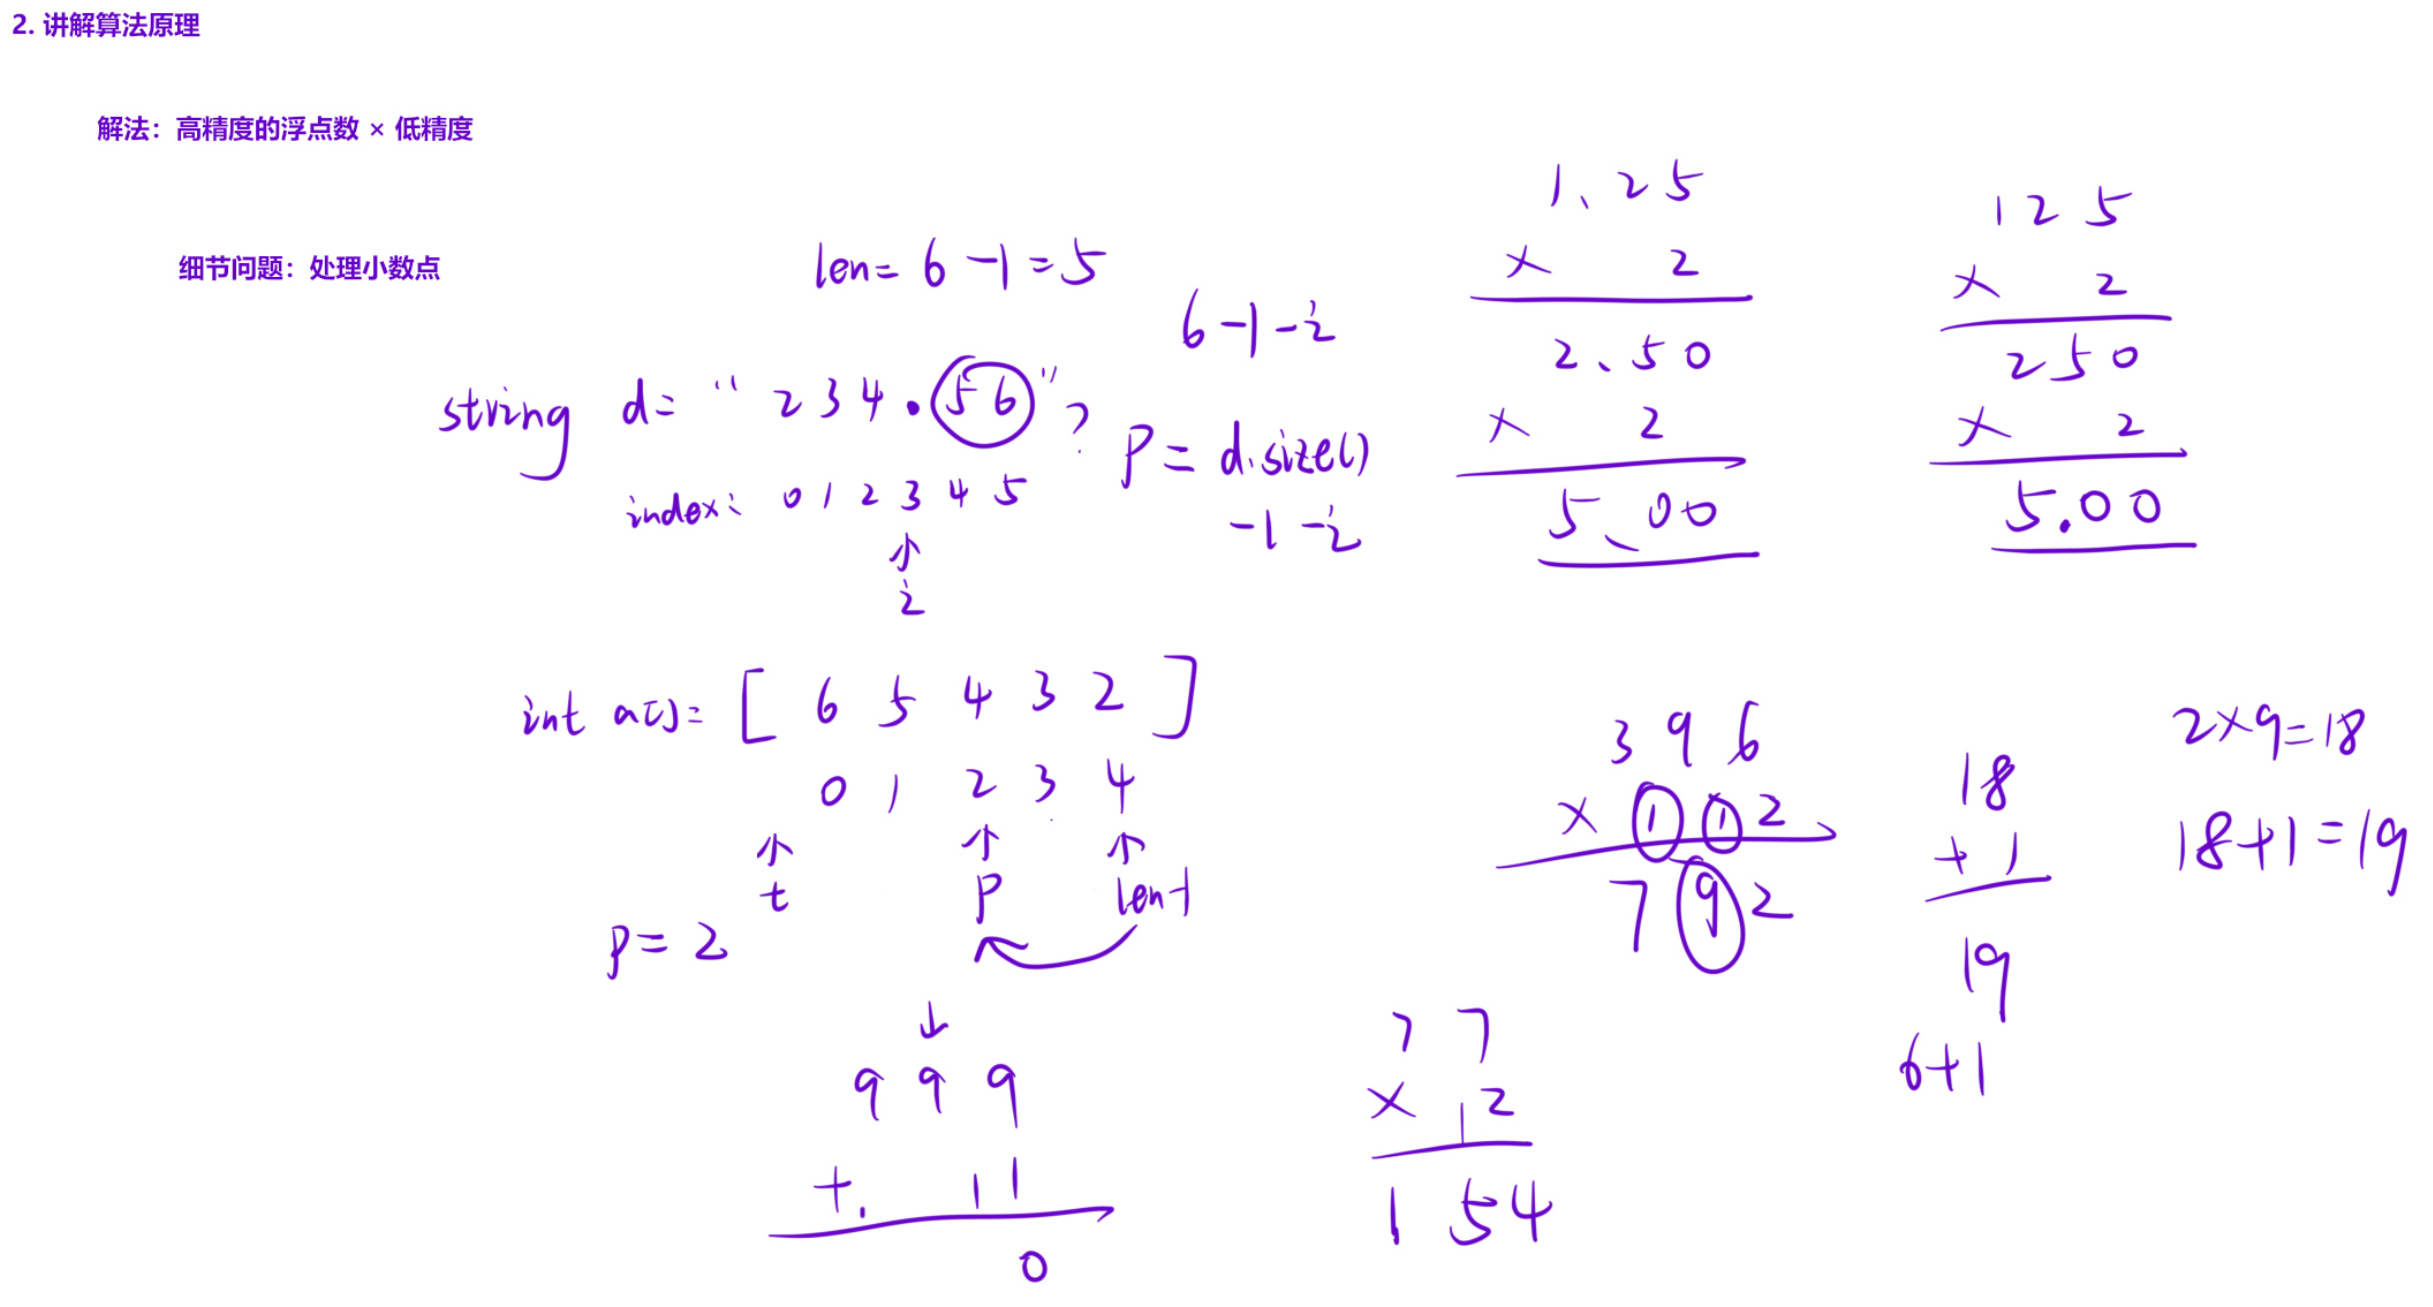 2. 讲解算法原理
解法：高精度的浮点数 × 低精度
细节问题：处理小数点
len = 6 - 1 = 5
6 - 1 - i
string d = " 2 3 4 . 5 6 " ?
index: 0 1 2 3 4 5
↑
i
p = d.size()
- 1 - i
1.25
× 2
2.50
× 2
5.00
125
× 2
250
× 2
5.00
int a[] = [ 6 5 4 3 2 ]
0 1 2 3 4
↑ ↑ ↑
t p len-1
p = 2
↓
9 9 9
+ . 1 1
0
7 7
× 1 2
1 5 4
3 9 6
× 1 1 2
7 9 2
18
+ 1
19
6+1
2×9=18
18+1=19